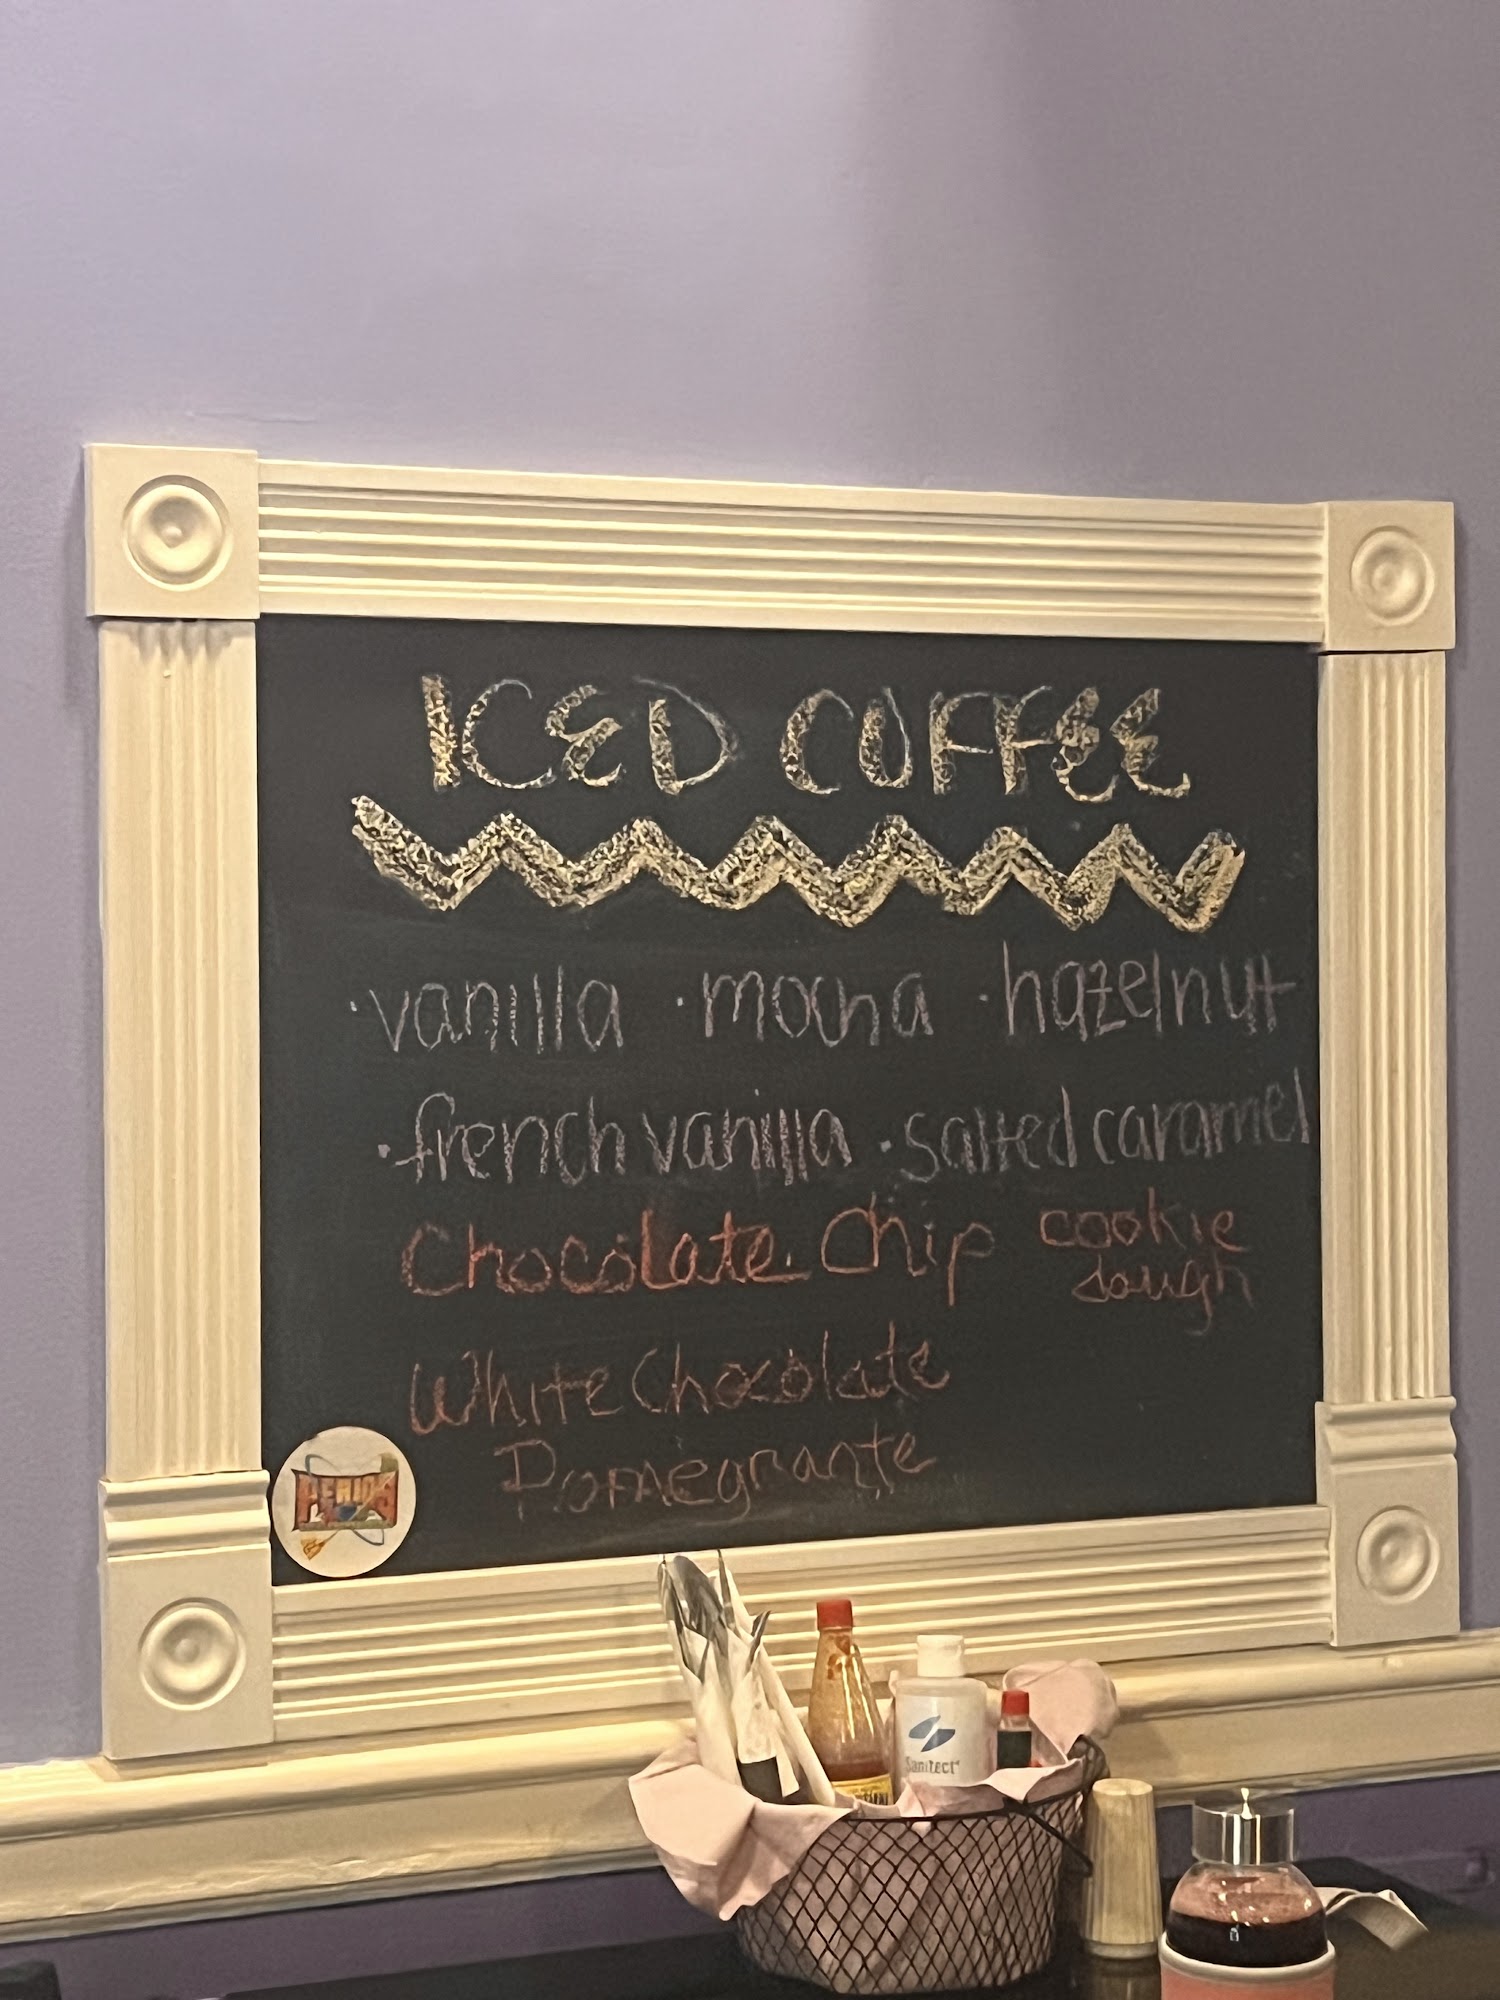 ICED COFFEE
·vanilla ·mocha ·hazelnut
·french vanilla ·salted caramel
Chocolate Chip cookie dough
White Chocolate
Pomegranate
Sanitect